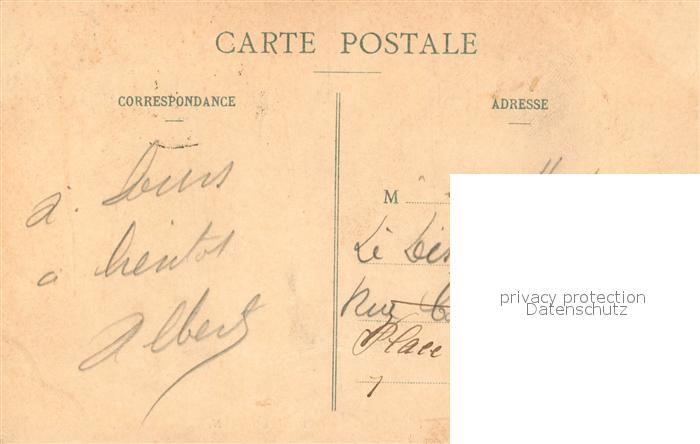 CARTE POSTALE
CORRESPONDANCE
ADRESSE
à Tours
a bientot
Albert
M
Le
Rue
Place
privacy protection
Datenschutz